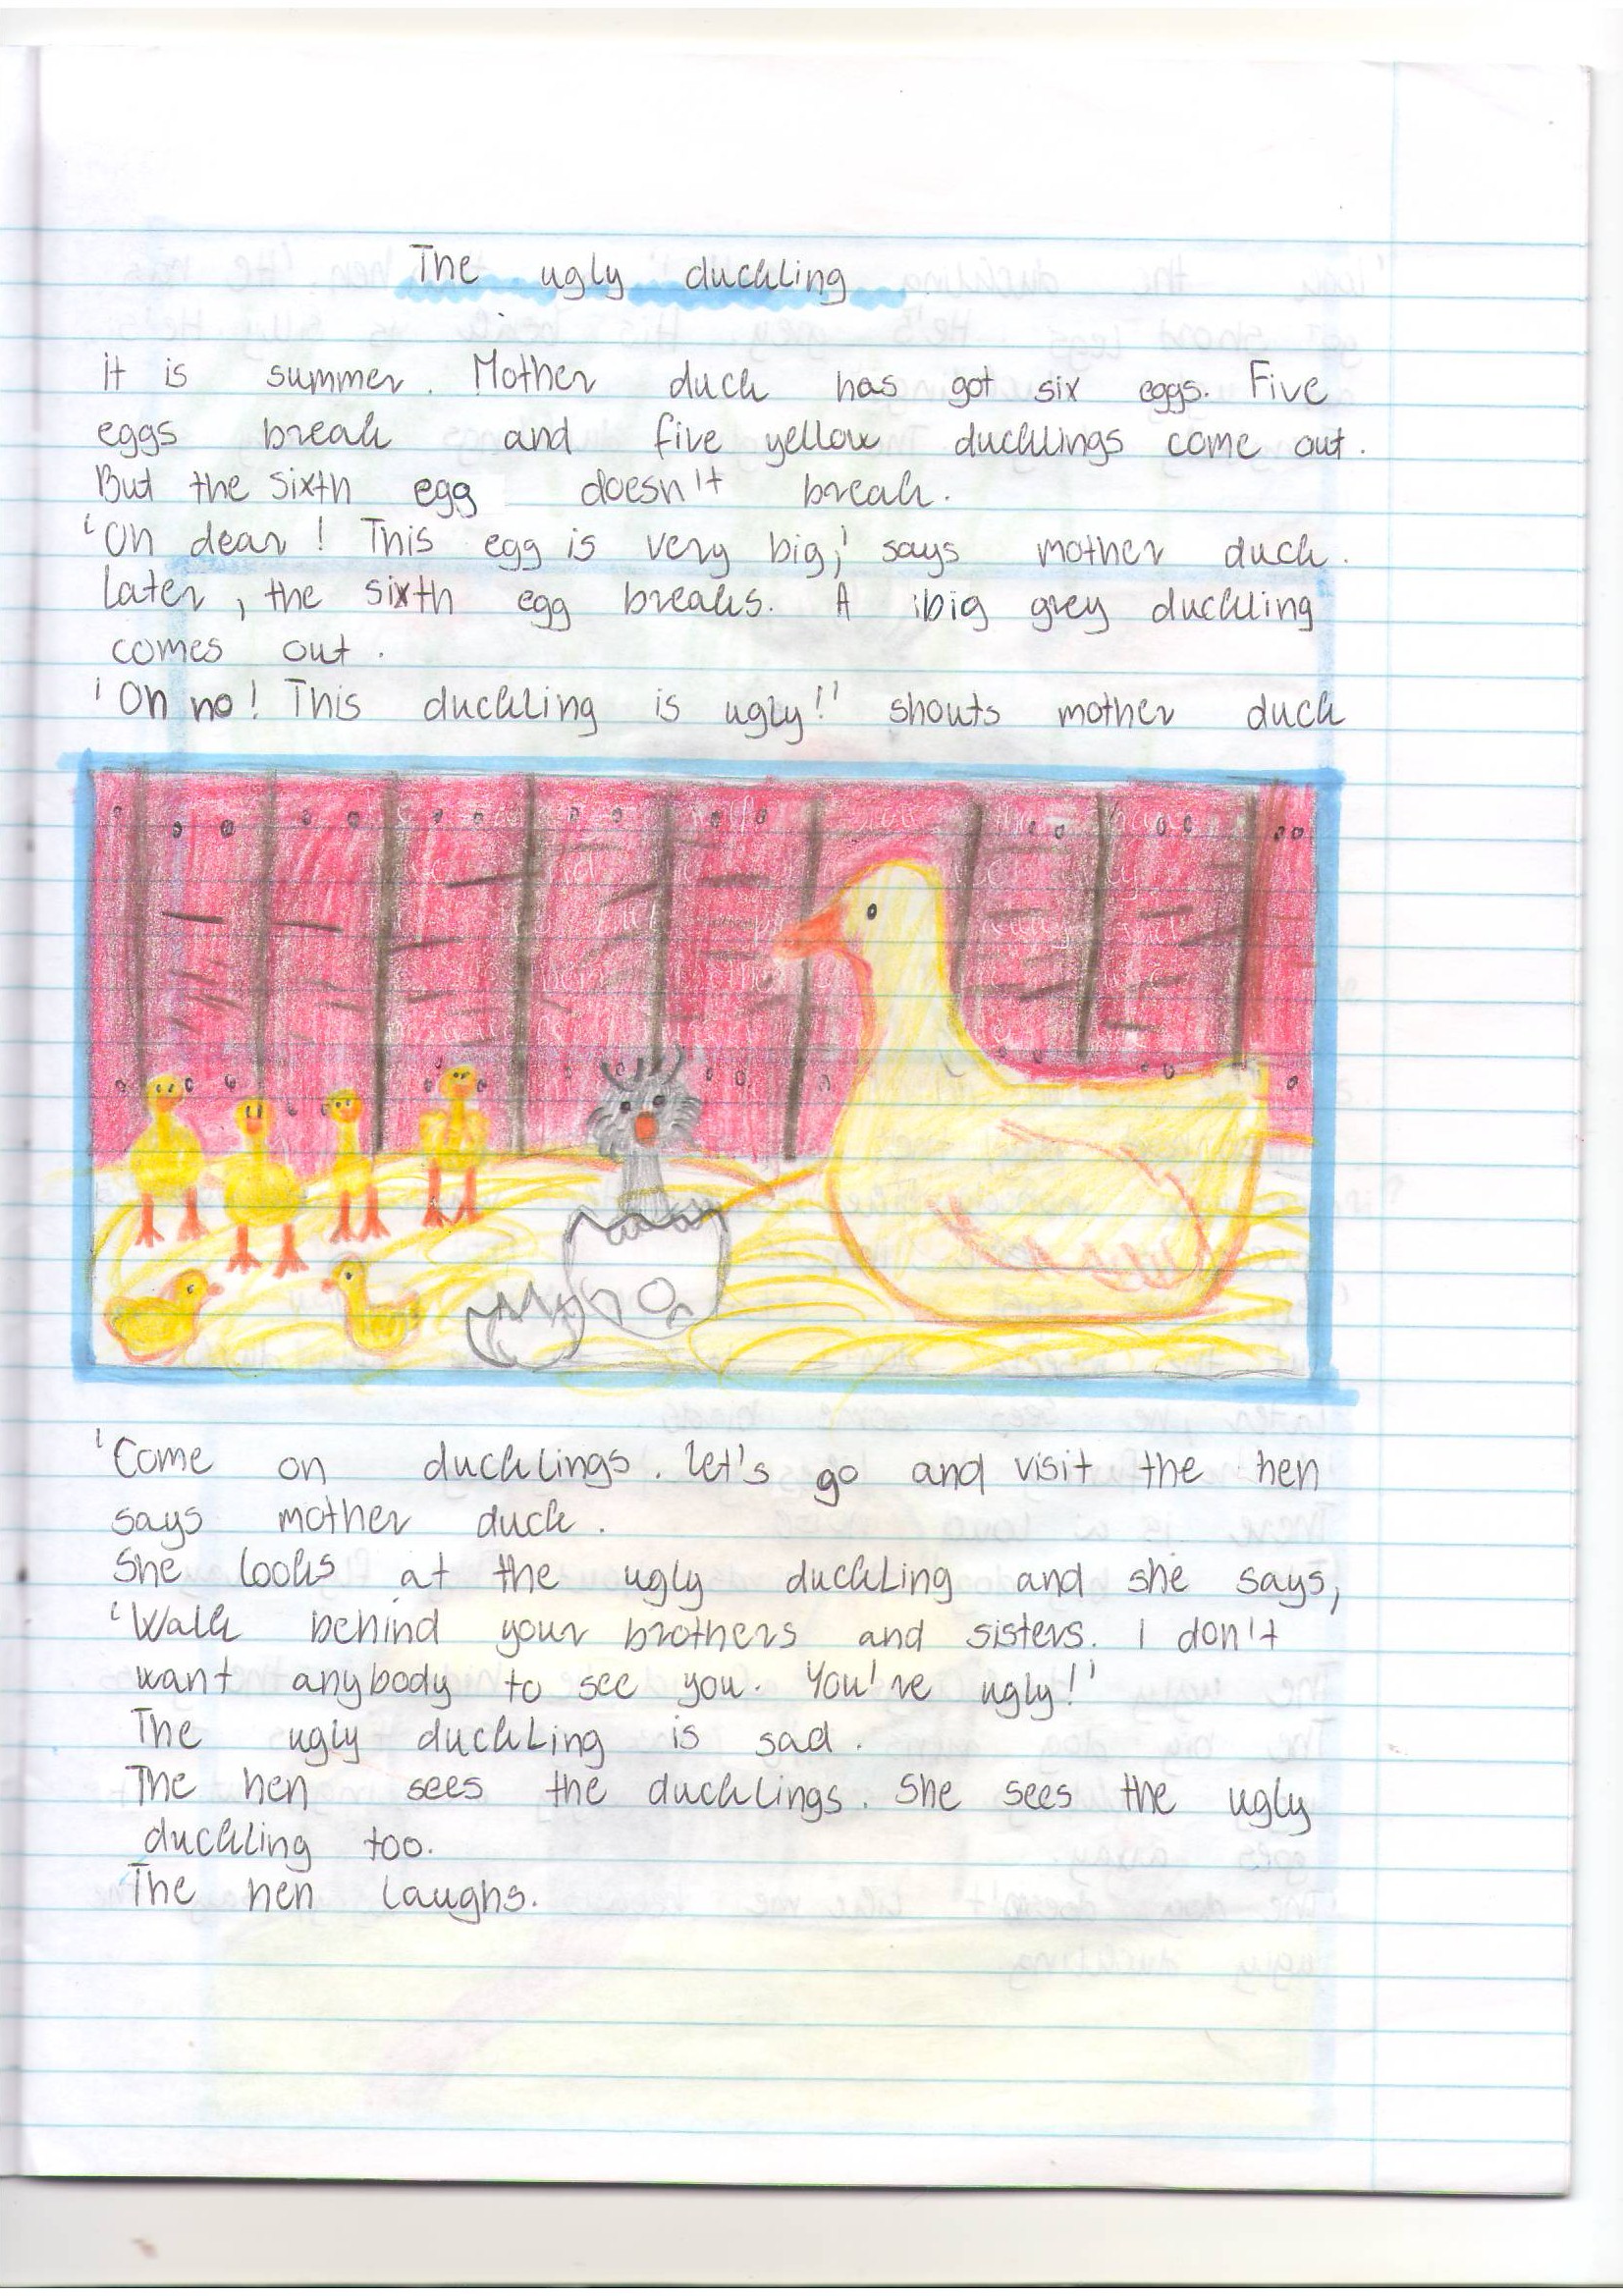 The ugly duckling
It is summer. Mother duck has got six eggs. Five
eggs break and five yellow ducklings come out.
But the sixth egg doesn't break.
'Oh dear! This egg is very big,' says mother duck.
Later, the sixth egg breaks. A big grey duckling
comes out.
'Oh no! This duckling is ugly!' shouts mother duck
'Come on ducklings. Let's go and visit the hen
says mother duck.
She looks at the ugly duckling and she says,
'Walk behind your brothers and sisters. I don't
want anybody to see you. You're ugly!'
The ugly duckling is sad.
The hen sees the ducklings. She sees the ugly
duckling too.
The hen laughs.